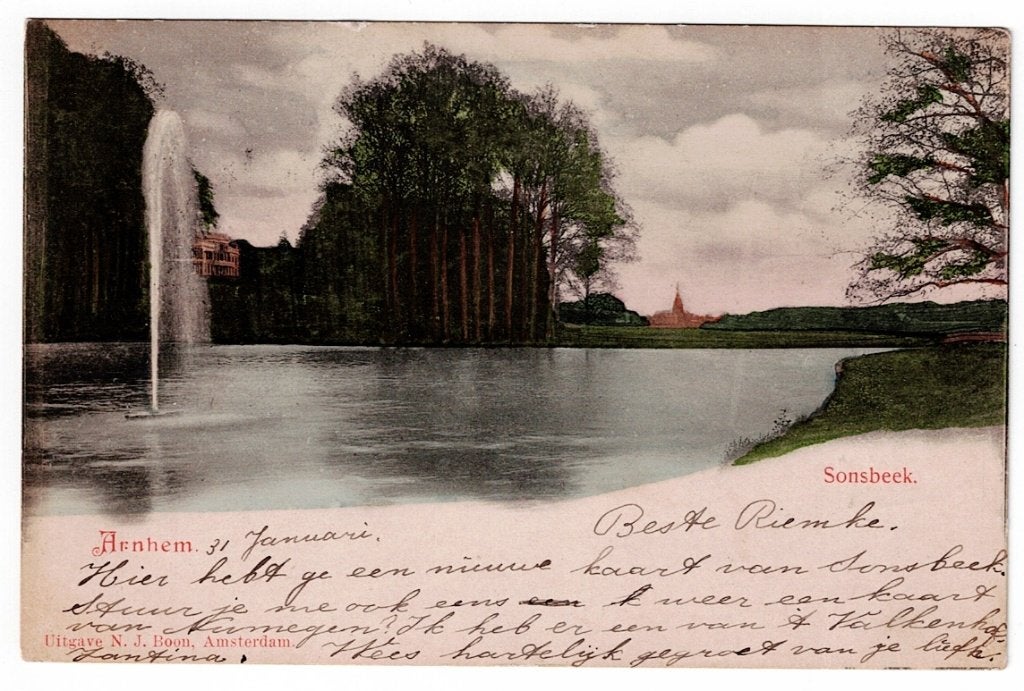 Sonsbeek.
Arnhem. 31 Januari. Beste Riemke.
Hier hebt ge een nieuwe kaart van Sonsbeek.
Stuur je me ook eens weer een kaart
van Nijmegen? Ik heb er een van 't Valkenhof.
Uitgave N. J. Boon, Amsterdam.
Jantina. Wees hartelijk gegroet van je liefh.